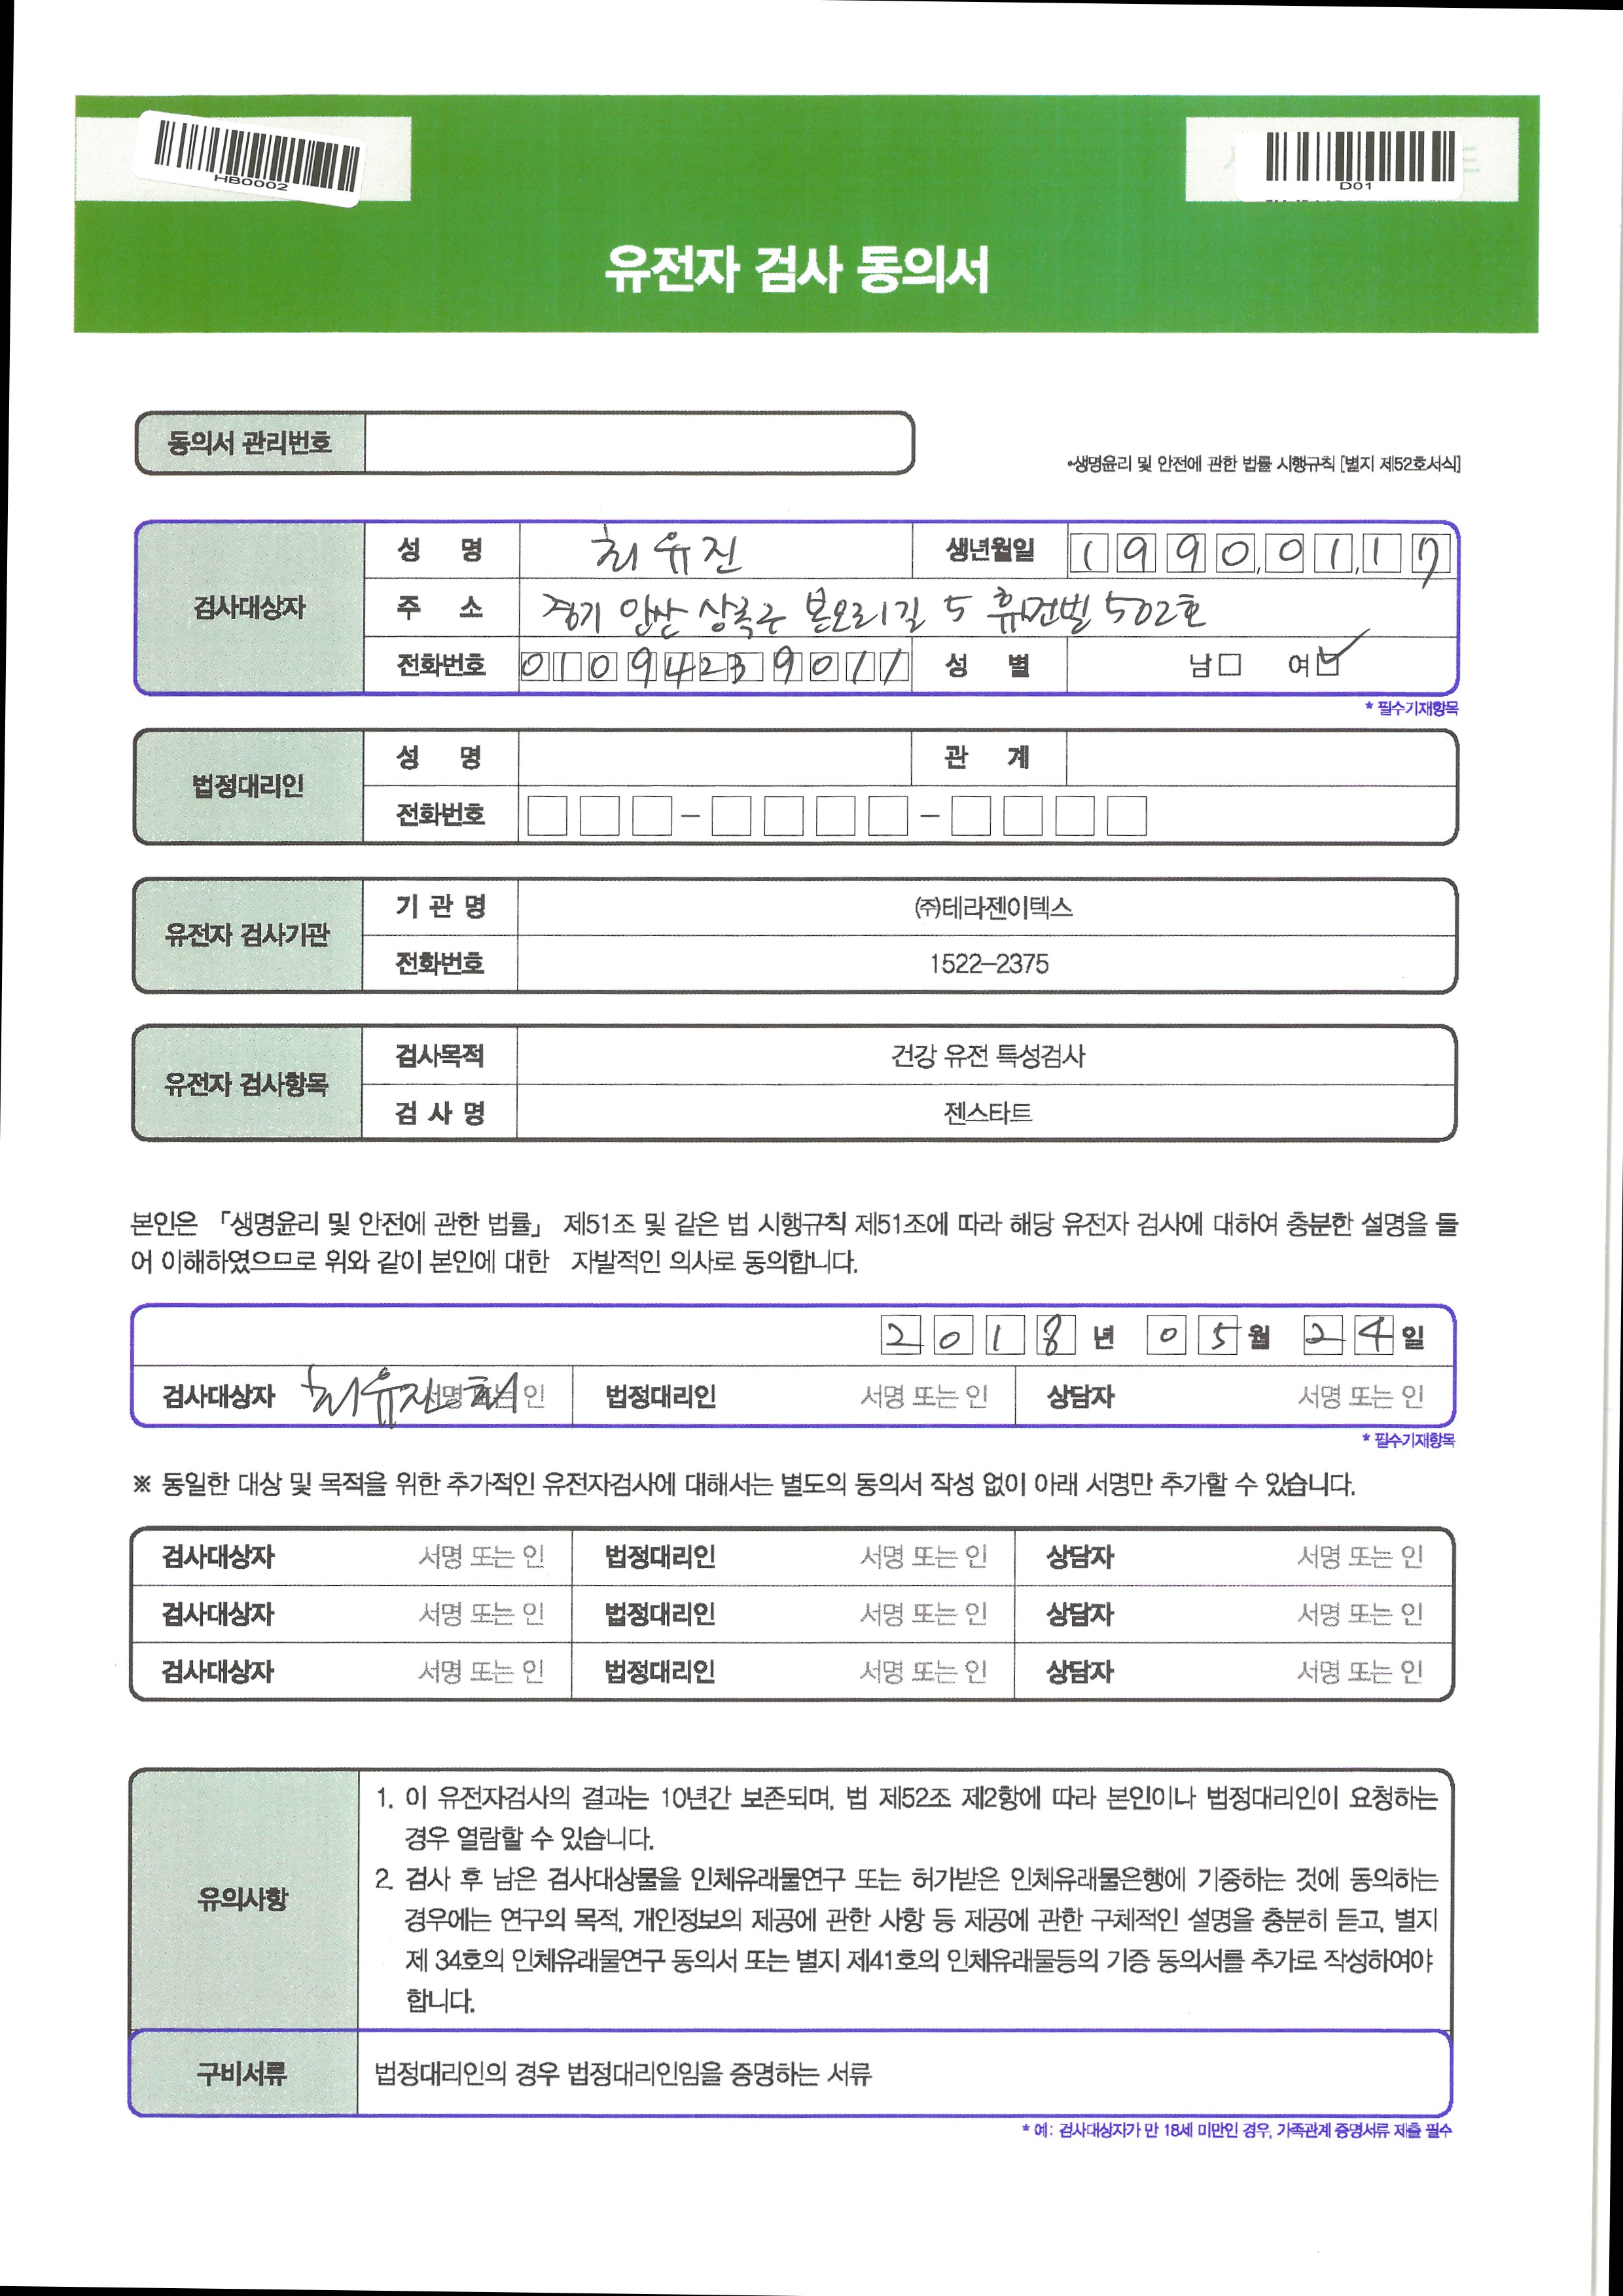 HB0002
D01
유전자 검사 동의서
동의서 관리번호
•생명윤리 및 안전에 관한 법률 시행규칙 [별지 제52호서식]
검사대상자
성 명 최유진 생년월일 1990.01.17
주 소 경기 안산 상록구 본오리길 5 휴먼빌 502호
전화번호 01094239011 성 별 남□ 여☑
* 필수기재항목
법정대리인
성 명 관 계
전화번호 □□□–□□□□–□□□□
유전자 검사기관
기 관 명 ㈜테라젠이텍스
전화번호 1522–2375
유전자 검사항목
검사목적 건강 유전 특성검사
검 사 명 젠스타트
본인은 「생명윤리 및 안전에 관한 법률」 제51조 및 같은 법 시행규칙 제51조에 따라 해당 유전자 검사에 대하여 충분한 설명을 들
어 이해하였으므로 위와 같이 본인에 대한 자발적인 의사로 동의합니다.
2018년 05월 24일
검사대상자 최유진 서명 또는 인 법정대리인 서명 또는 인 상담자 서명 또는 인
* 필수기재항목
※ 동일한 대상 및 목적을 위한 추가적인 유전자검사에 대해서는 별도의 동의서 작성 없이 아래 서명만 추가할 수 있습니다.
검사대상자 서명 또는 인 법정대리인 서명 또는 인 상담자 서명 또는 인
검사대상자 서명 또는 인 법정대리인 서명 또는 인 상담자 서명 또는 인
검사대상자 서명 또는 인 법정대리인 서명 또는 인 상담자 서명 또는 인
유의사항
1. 이 유전자검사의 결과는 10년간 보존되며, 법 제52조 제2항에 따라 본인이나 법정대리인이 요청하는
경우 열람할 수 있습니다.
2. 검사 후 남은 검사대상물을 인체유래물연구 또는 허가받은 인체유래물은행에 기증하는 것에 동의하는
경우에는 연구의 목적, 개인정보의 제공에 관한 사항 등 제공에 관한 구체적인 설명을 충분히 듣고, 별지
제 34호의 인체유래물연구 동의서 또는 별지 제41호의 인체유래물등의 기증 동의서를 추가로 작성하여야
합니다.
구비서류 법정대리인의 경우 법정대리인임을 증명하는 서류
* 예: 검사대상자가 만 18세 미만인 경우, 가족관계 증명서류 제출 필수